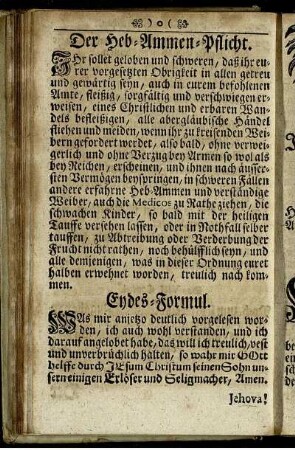 ) o (
Der Heb-Ammen-Pflicht.
IHr sollet geloben und schweren, daß ihr eu-
rer vorgesetzten Obrigkeit in allen getreu
und gewärtig seyn, auch in eurem befohlenen
Amte, fleißig, sorgfältig und verschwiegen er-
weisen, eines Christlichen und erbaren Wan-
dels befleißigen, alle abergläubische Händel
fliehen und meiden, wenn ihr zu kreisenden Wei-
bern gefordert werdet, also bald, ohne verwei-
gerlich und ohne Verzug bey Armen so wol als
bey Reichen, erscheinen, und ihnen nach äusser-
sten Vermögen beyspringen, in schweren Fällen
andere erfahrne Heb-Ammen und verständige
Weiber, auch die Medicos zu Rathe ziehen, die
schwachen Kinder, so bald mit der heiligen
Tauffe versehen lassen, oder in Nothfall selber
tauffen, zu Abtreibung oder Verderbung der
Frucht nicht rathen, noch behülfflich seyn, und
alle demjenigen, was in dieser Ordnung euret
halben erwehnet worden, treulich nach kom-
men.
Eydes-Formul.
WAs mir anjetzo deutlich vorgelesen wor-
den, ich auch wohl verstanden, und ich
darauf angelobet habe, das will ich treulich, vest
und unverbrüchlich halten, so wahr mir GOtt
helffe durch JEsum Christum seinen Sohn un-
sern einigen Erlöser und Seligmacher, Amen.
Jehova!